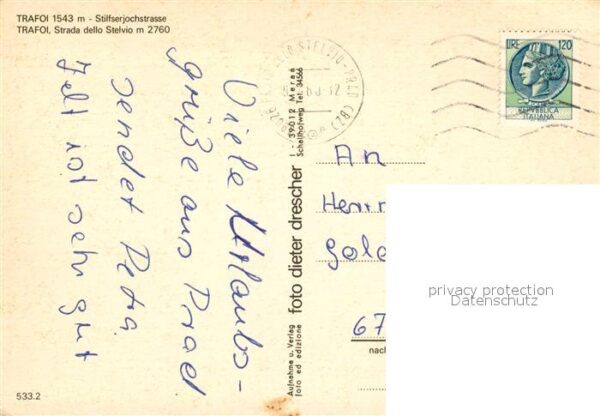 TRAFOI 1543 m - Stilfserjochstrasse
TRAFOI, Strada dello Stelvio m 2760
Viele Urlaubs-
grüße aus Prad
sendet Petra
Zelt ist sehr gut
Aufnahme u. Verlag
foto ed edizione
foto dieter drescher
I - 39012 Meran
Schallhofweg Tel. 34566
STELVIO - PRAD (BZ)
LIRE 120
REPVBBLICA
ITALIANA
An
Herrn
67
nach
privacy protection
Datenschutz
533.2